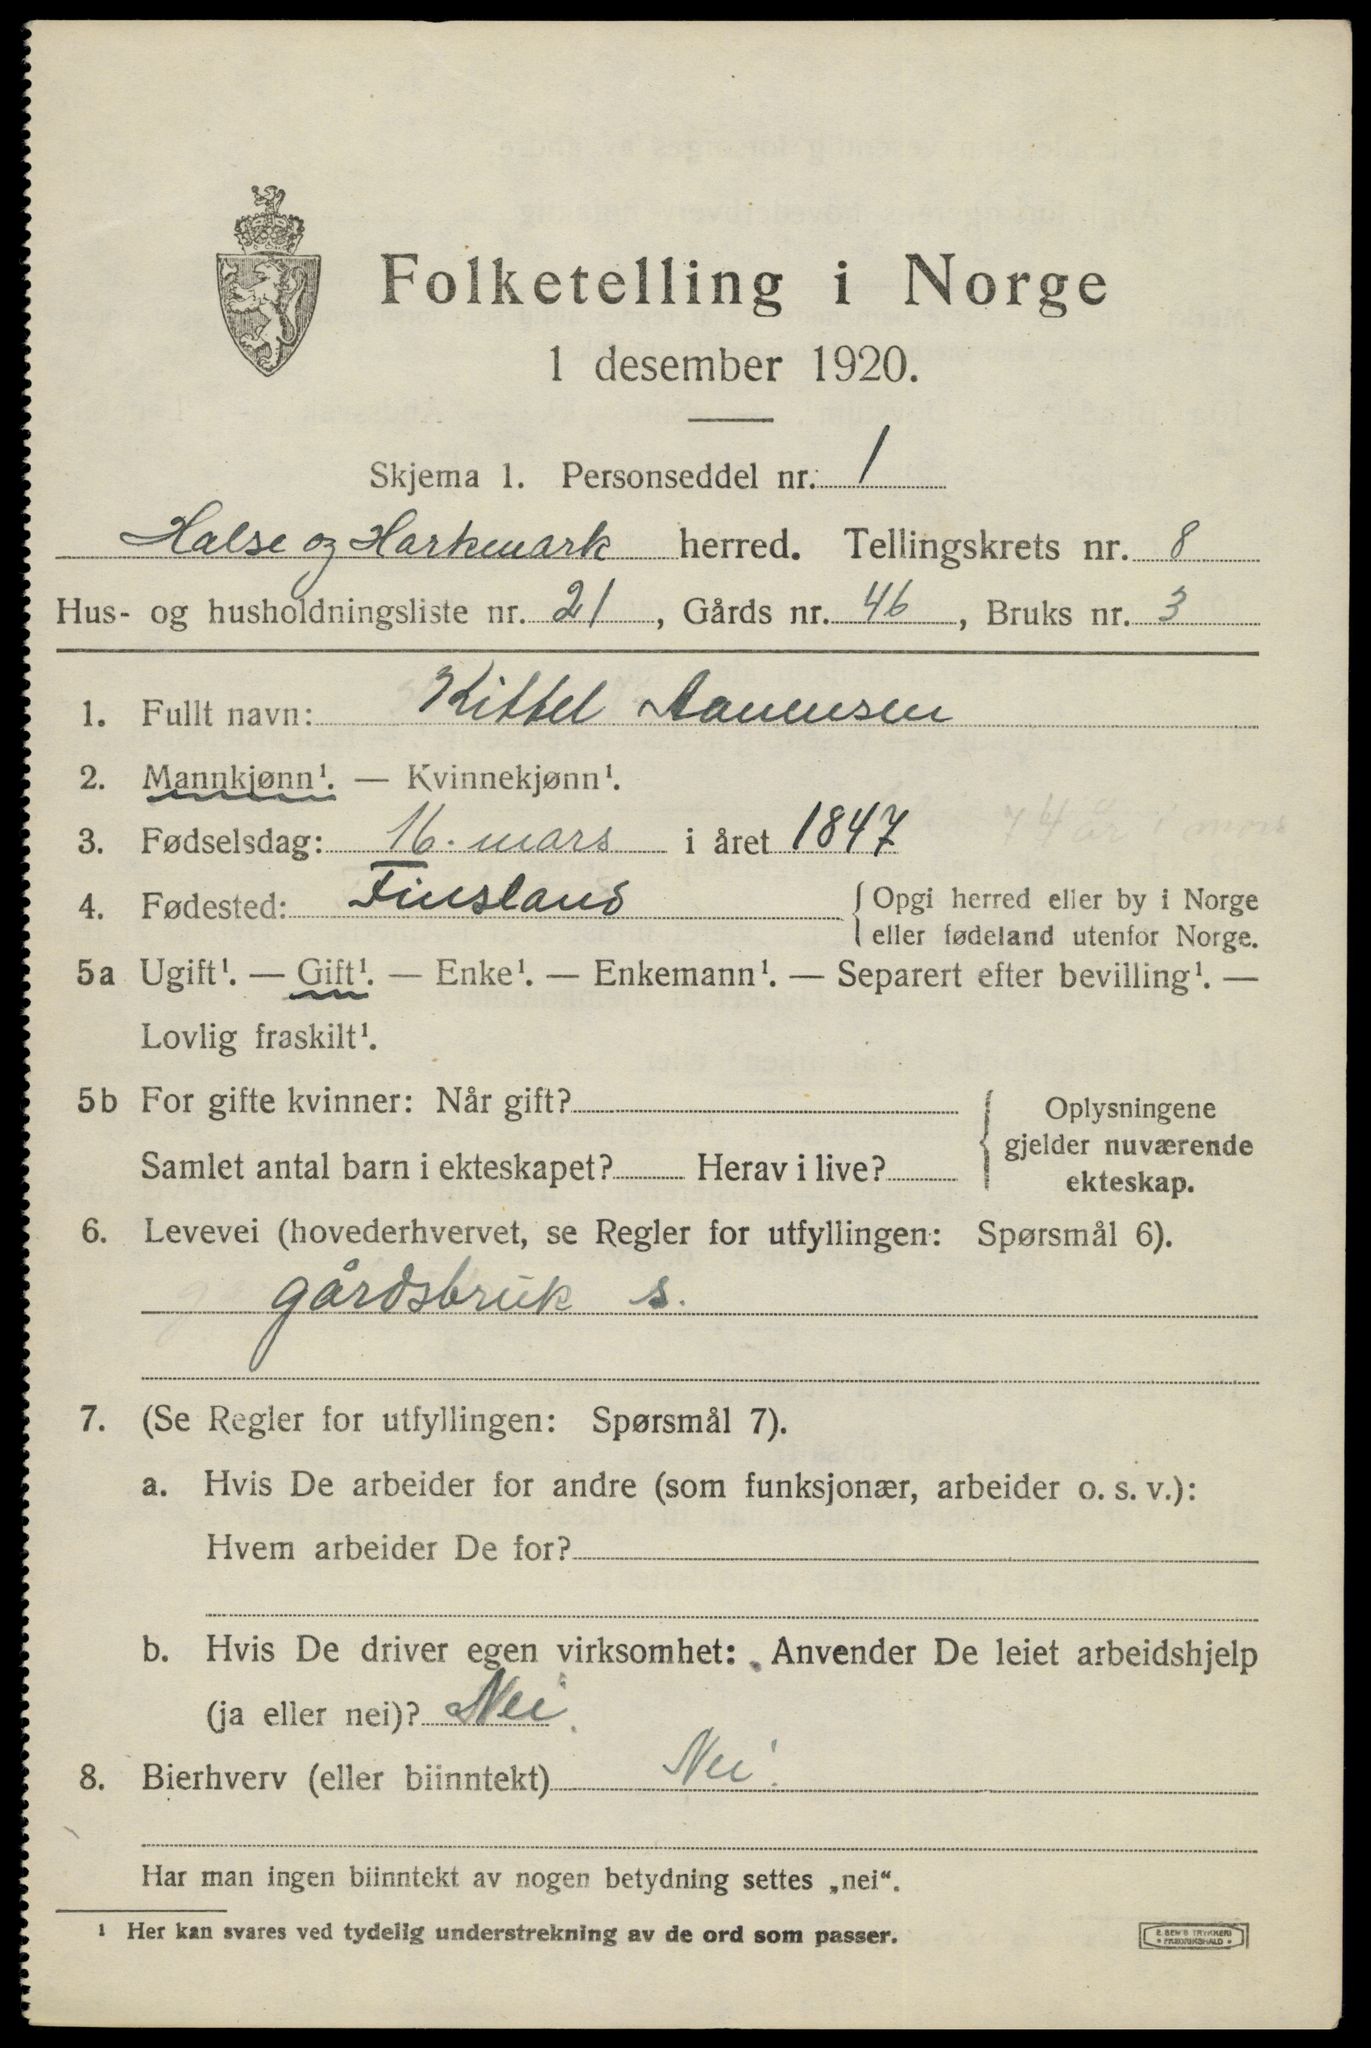 Folketelling i Norge
1 desember 1920.
Skjema 1. Personseddel nr. 1
Halse og Harkmark herred. Tellingskrets nr. 8
Hus- og husholdningsliste nr. 21, Gårds nr. 46, Bruks nr. 3
1. Fullt navn: Kittel Aanensen
2. Mannkjønn¹. — Kvinnekjønn¹.
3. Fødselsdag: 16. mars i året 1847
74 år i mars
4. Fødested: Finsland {Opgi herred eller by i Norge
eller fødeland utenfor Norge.
5a Ugift¹. — Gift¹. — Enke¹. — Enkemann¹. — Separert efter bevilling¹. —
Lovlig fraskilt¹.
5b For gifte kvinner: Når gift?
Samlet antal barn i ekteskapet? Herav i live?
{Oplysningene
gjelder nuværende
ekteskap.
6. Levevei (hovederhvervet, se Regler for utfyllingen: Spørsmål 6).
gårdsbruk s.
7. (Se Regler for utfyllingen: Spørsmål 7).
a. Hvis De arbeider for andre (som funksjonær, arbeider o. s. v.):
Hvem arbeider De for?
b. Hvis De driver egen virksomhet: Anvender De leiet arbeidshjelp
(ja eller nei)? Nei.
8. Bierhverv (eller biinntekt) Nei.
Har man ingen biinntekt av nogen betydning settes „nei“.
¹ Her kan svares ved tydelig understrekning av de ord som passer.
E. SEM'S TRYKKERI
FREDRIKSHALD